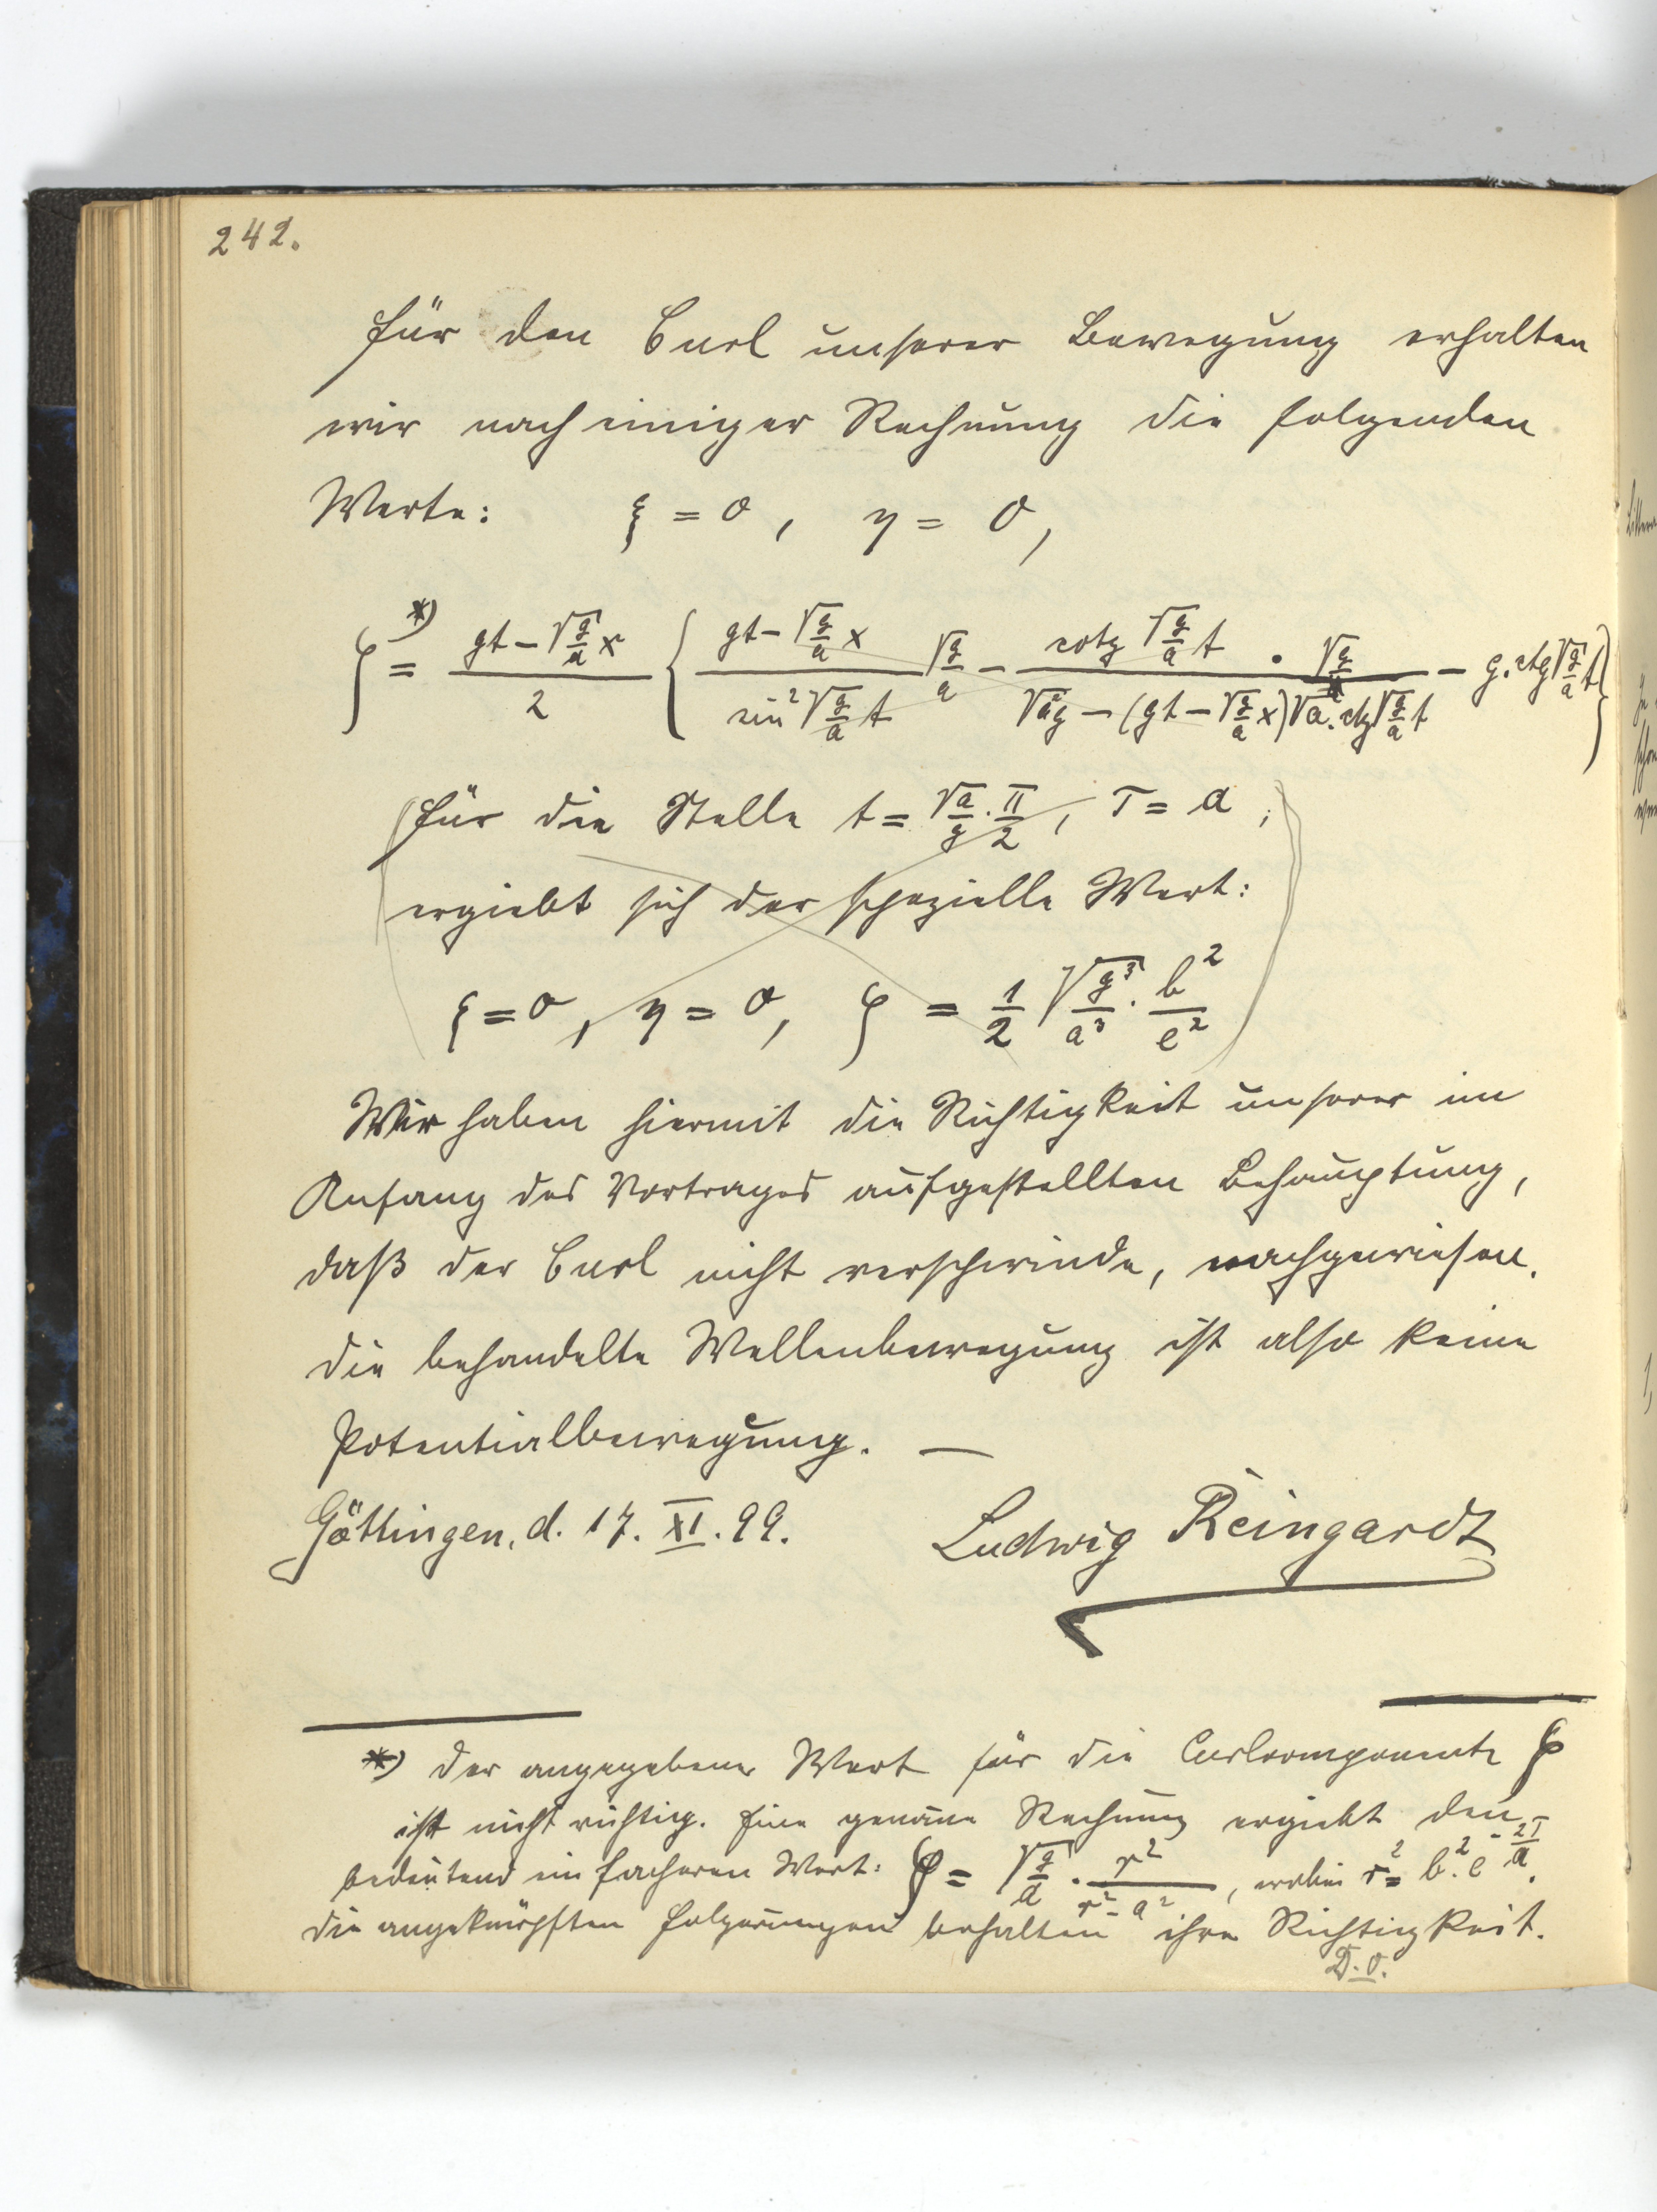 242.
Für den Curl unserer Bewegung erhalten
wir nach einiger Rechnung die folgenden
Werte: ξ = 0, η = 0,
ζ*) = (gt − √(g/a) x)/2 { (gt − √(g/a) x)/(sin² √(g/a) t) √(g/a) − (cotg √(g/a) t · √(g/a))/(√(a²g) − (gt − √(g/a) x) √a · ctg √(g/a) t) − g · ctg √(g/a) t }
(Für die Stelle t = √(a/g) · π/2, τ = a;
ergiebt sich der spezielle Wert:
ξ = 0, η = 0, ζ = 1/2 √(g³/a³) · b²/e²)
Wir haben hiermit die Richtigkeit unserer im
Anfang des Vortrages aufgestellten Behauptung,
daß der Curl nicht verschwinde, nachgewiesen.
Die behandelte Wellenbewegung ist also keine
Potentialbewegung. —
Göttingen, d. 17. XI. 99. Ludwig Reingardt
*) Der angegebene Wert für die Curlcomponente ζ
ist nicht richtig. Eine genaue Rechnung ergiebt den
bedeutend einfacheren Wert: ζ = √(g/a) · r²/(r² − a²), wobei r² = b² · e^(−2τ/a).
Die angeknüpften Folgerungen behalten ihre Richtigkeit.
D. O.